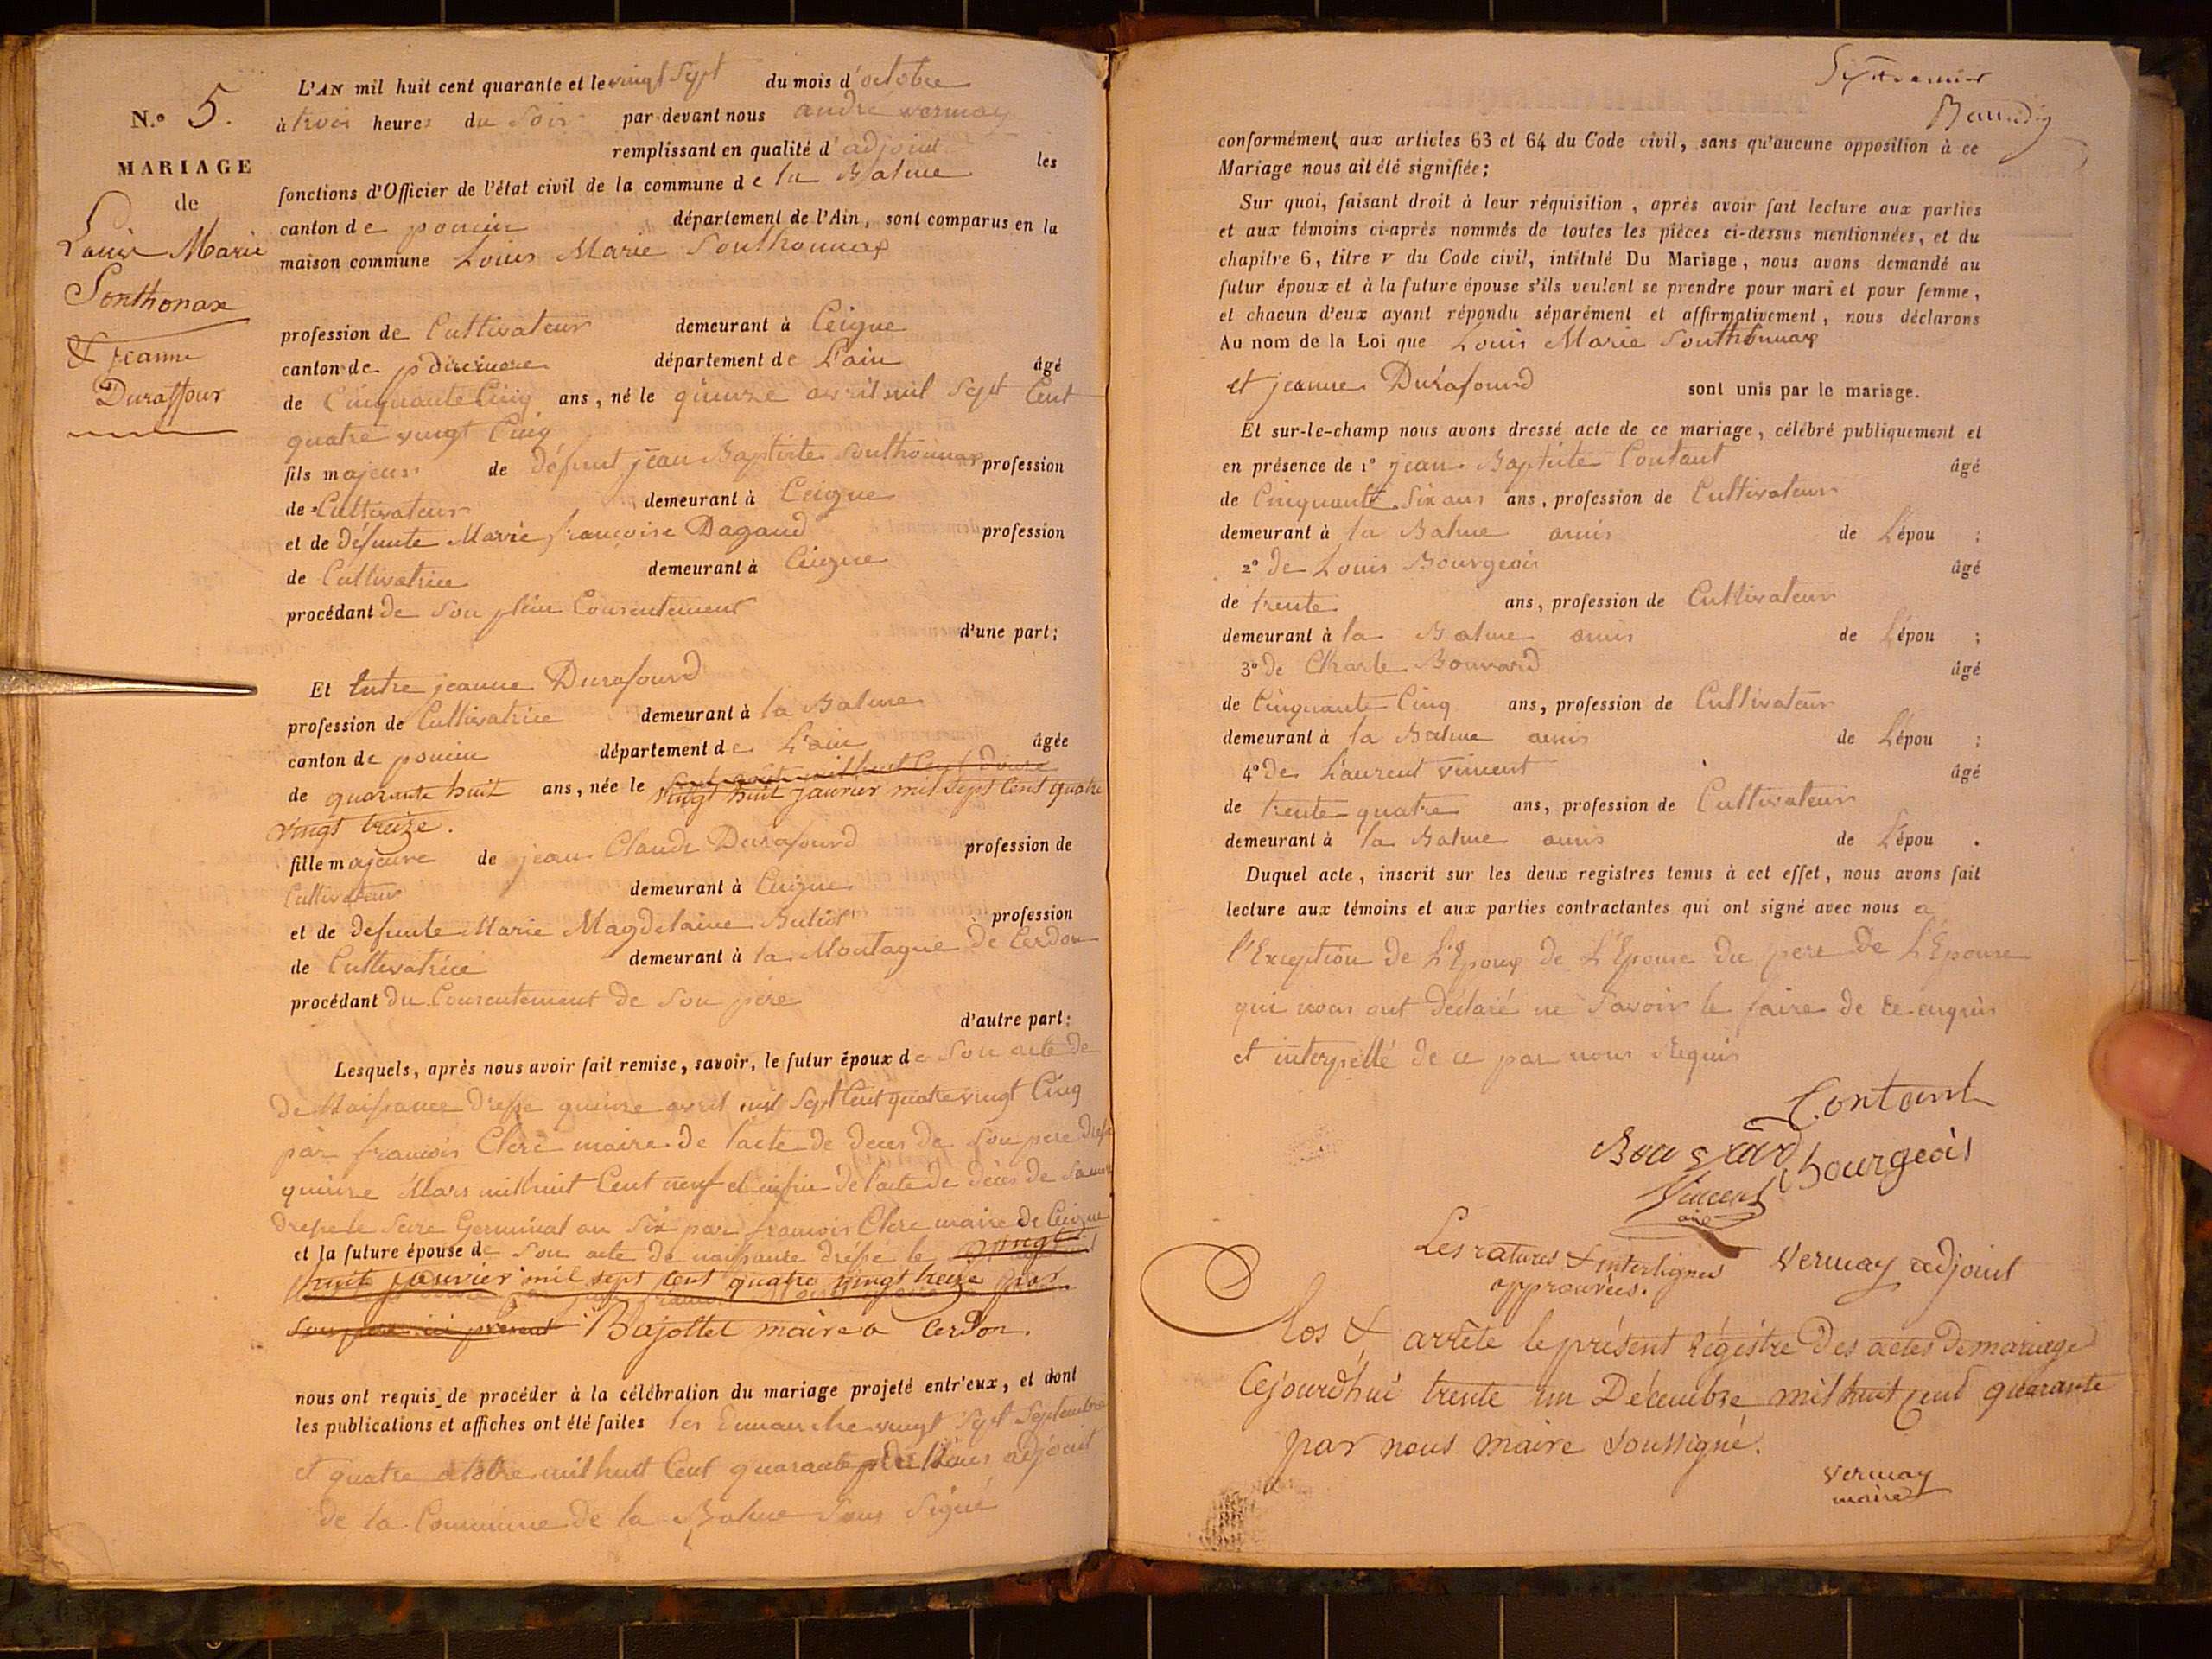 N.o 5.
MARIAGE
de
Louis Marie
Sonthonax
& jeanne
Duraffour
L'AN mil huit cent quarante et le vingt Sept du mois d'octobre
à trois heures du Soir par-devant nous andré vermay
remplissant en qualité d'adjoint les
fonctions d'Officier de l'état civil de la commune de la Balme
canton de poncin département de l'Ain, sont comparus en la
maison commune Louis Marie Sonthonnax
profession de Cultivateur demeurant à Ceigne
canton de département de L'ain âgé
de Cinquante Cinq ans, né le quinze avril mil Sept Cent
quatre vingt Cinq
fils majeur de défunt jean Baptiste Sonthonnax profession
de Cultivateur demeurant à Ceigne
et de défunte Marie françoise Dagaud profession
de Cultivatrice demeurant à Ceigne
procédant de Son plein Consentement
d'une part;
Et Entre jeanne Durafourd
profession de Cultivatrice demeurant à la Balme
canton de poncin département de L'ain âgée
de quarante huit ans, née le
vingt huit janvier mil sept Cent quatre
vingt treize.
fille majeure de jean Claude Durafourd profession de
Cultivateur demeurant à Ceigne
et de defunte Marie Magdelaine profession
de Cultivatrice demeurant à la Montagne de Cerdon
procédant du Consentement de Son père
d'autre part:
Lesquels, après nous avoir fait remise, savoir, le futur époux de Son acte de
de Naissance dresse quinze avril mil Sept Cent quatre vingt Cinq
par francois Clerc maire de l'acte de deces de Son père
quinze Mars mil huit Cent neuf et enfin de l'acte de déces de Sa mere
dresse le Seize Germinal an Six par francois Clerc maire de Ceigne
et la future épouse de Son acte de naissance dresse le vingt
huit janvier mil sept cent quatre vingt treize par
Son père ici présent Bajollet maire a Cerdon.
nous ont requis de procéder à la célébration du mariage projeté entr'eux, et dont
les publications et affiches ont été faites les Dimanche vingt Sept Septembre
et quatre octobre mil huit Cent quarante par Nous adjoint
de la Commune de la Balme Sous Signé
conformément aux articles 63 et 64 du Code civil, sans qu'aucune opposition à ce
Mariage nous ait été signifiée;
Sur quoi, faisant droit à leur réquisition, après avoir fait lecture aux parties
et aux témoins ci-après nommés de toutes les pièces ci-dessus mentionnées, et du
chapitre 6, titre v du Code civil, intitulé Du Mariage, nous avons demandé au
futur époux et à la future épouse s'ils veulent se prendre pour mari et pour femme,
et chacun d'eux ayant répondu séparément et affirmativement, nous déclarons
Au nom de la Loi que Louis Marie Sonthonnax
et jeanne Durafourd sont unis par le mariage.
Et sur-le-champ nous avons dressé acte de ce mariage, célébré publiquement et
en présence de 1o jean Baptiste Contant âgé
de Cinquante Six ans ans, profession de Cultivateur
demeurant à la Balme amis de L'épou ;
2o de Louis Bourgeois âgé
de trente ans, profession de Cultivateur
demeurant à la Balme amis de L'épou ;
3o de Charle Bouvard âgé
de Cinquante Cinq ans, profession de Cultivateur
demeurant à la Balme amis de L'épou ;
4o de Laurent vincent âgé
de trente quatre ans, profession de Cultivateur
demeurant à la Balme amis de L'épou .
Duquel acte, inscrit sur les deux registres tenus à cet effet, nous avons fait
lecture aux témoins et aux parties contractantes qui ont signé avec nous a
l'Exception de L'Epoux de L'Epouse du pere de L'Epouse
qui nous ont déclaré ne Savoir le faire de ce enquis
et interpellé de ce par nous Requis
Contant
Bouvard Bourgeois
Vincent
Les ratures & interlignes Vermay adjoint
approuvées.
Clos & arrêté le présent Régistre Des actes de mariage
Cejourd'hui trente un Décembre mil huit cent quarante
par nous maire soussigné.
Vermay
maire